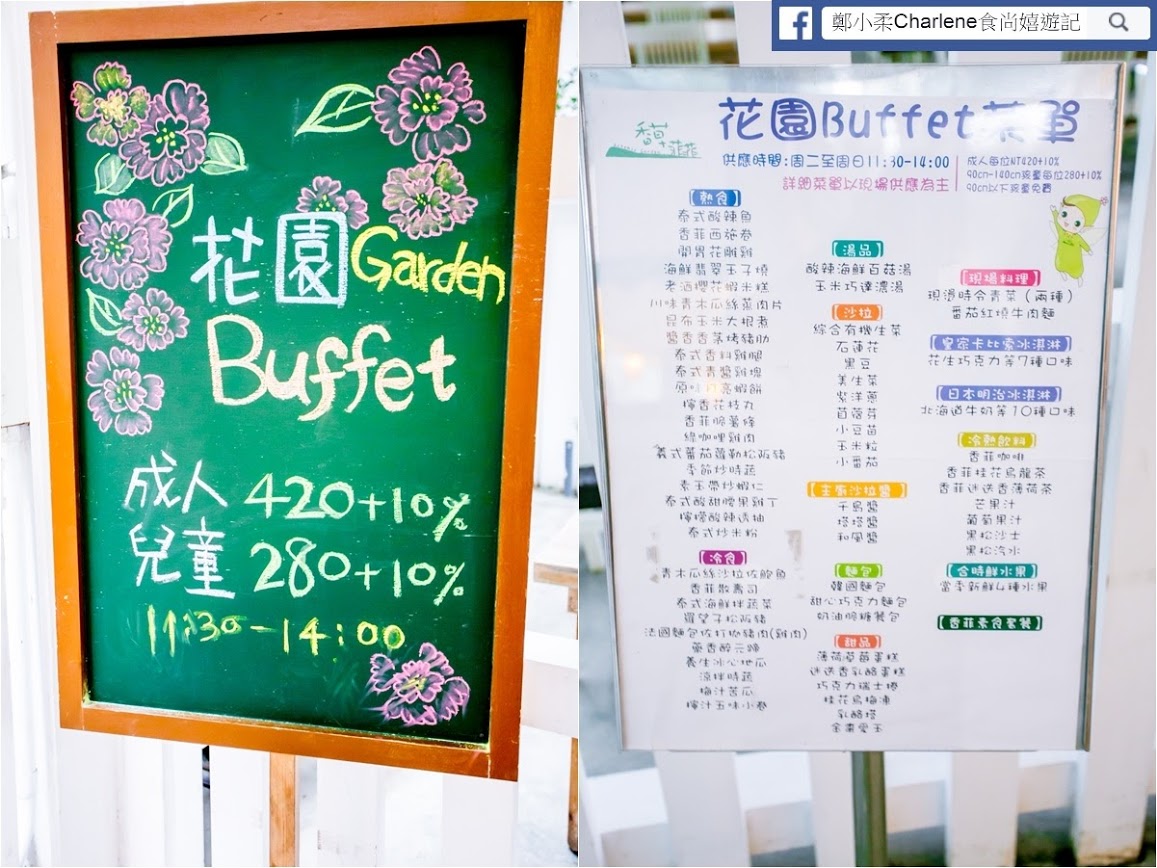 花園Garden
Buffet
成人 420+10%
兒童 280+10%
11:30-14:00
鄭小柔Charlene食尚嬉遊記
花園Buffet菜單
香草菲菲
供應時間:周二至周日11:30-14:00
詳細菜單以現場供應為主
成人每位NT420+10%
90cm-140cm孩童每位280+10%
90cm以下孩童免費
熱食
泰式酸辣魚
香菲西施卷
開胃花雕雞
海鮮翡翠玉子燒
老酒櫻花蝦米糕
川味青木瓜絲蒸肉片
昆布玉米大根煮
醬香香茅烤豬肋
泰式香料雞腿
泰式青醬雞塊
原味 亮蝦餅
檸香花枝丸
香菲脆薯條
綠咖哩雞肉
義式蕃茄蘿勒松阪豬
季節炒時蔬
素玉帶炒蝦仁
泰式酸甜腰果雞丁
檸檬酸辣透抽
泰式炒米粉
冷食
青木瓜絲沙拉佐鮑魚
香菲散壽司
泰式海鮮拌蔬菜
羅望子松阪豬
法國麵包佐打拋豬肉(雞肉)
養生冰心地瓜
涼拌時蔬
梅汁苦瓜
檸汁五味小卷
湯品
酸辣海鮮百菇湯
玉米巧達濃湯
沙拉
綜合有機生菜
石蓮花
黑豆
美生菜
紫洋蔥
苜蓿芽
小豆苗
玉米粒
小番茄
主廚沙拉醬
千島醬
塔塔醬
和風醬
麵包
韓國麵包
甜心巧克力麵包
奶油脆糖餐包
甜品
薄荷草莓蛋糕
迷迭香乳酪蛋糕
巧克力瑞士捲
桂花烏梅凍
乳酪塔
金棗愛玉
現場料理
現燙時令青菜(兩種)
番茄紅燒牛肉麵
皇家卡比索冰淇淋
花生巧克力等7種口味
日本明治冰淇淋
北海道牛奶等10種口味
冷熱飲料
香菲咖啡
香菲桂花烏龍茶
香菲迷迭香薄荷茶
芒果汁
葡萄果汁
黑松沙士
黑松汽水
合時鮮水果
當季新鮮4種水果
香菲素食套餐